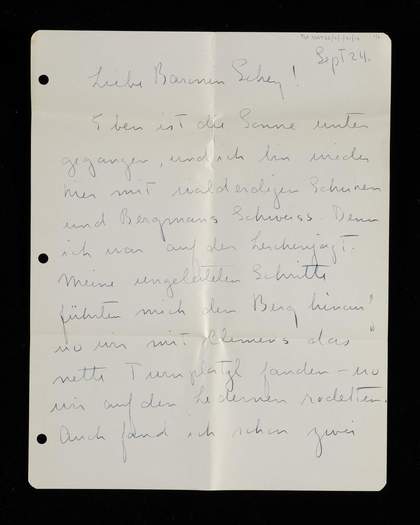 Sept 24.
Liebe Baronin Schey!
Eben ist die Sonne unter
gegangen, und ich bin wieder
hier mit walderdigen Schuhen
und Bergmanns Schweiss. Denn
ich war auf der
Meine ungeleiteten Schritte
führten mich den Berg hinan!
wo wir mit Klemens das
nette Turnplatzl fanden – wo
wir auf den Ledernen rodelten.
Auch fand ich schon zwei